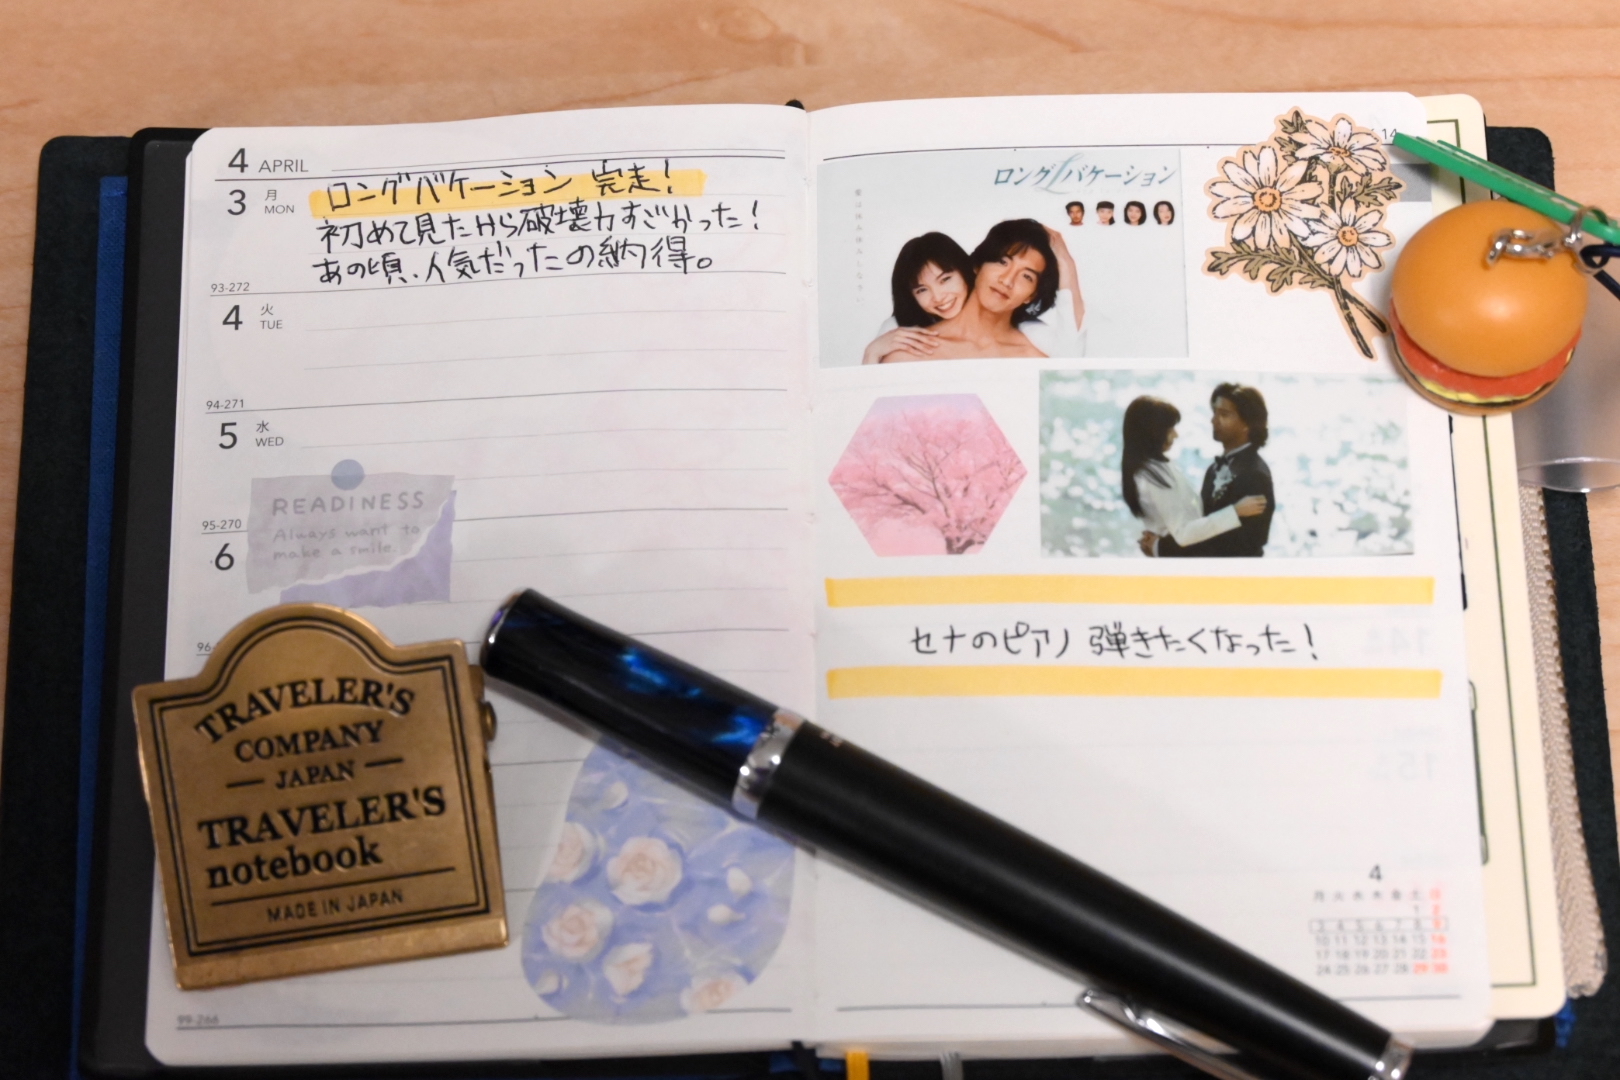 4 APRIL
3 月 MON
ロングバケーション 完走!
初めて見たけら破壊力すごかった!
あの頃、人気だったの納得。
93-272
4 火 TUE
94-271
5 水 WED
95-270
6
READINESS
Always want to
make a smile.
96-
TRAVELER'S
COMPANY
JAPAN
TRAVELER'S
notebook
MADE IN JAPAN
99-266
14
ロングバケーション
セナのピアノ 弾きたくなった!
4
月 火 水 木 金 土 日
1 2
3 4 5 6 7 8 9
10 11 12 13 14 15 16
17 18 19 20 21 22 23
24 25 26 27 28 29 30